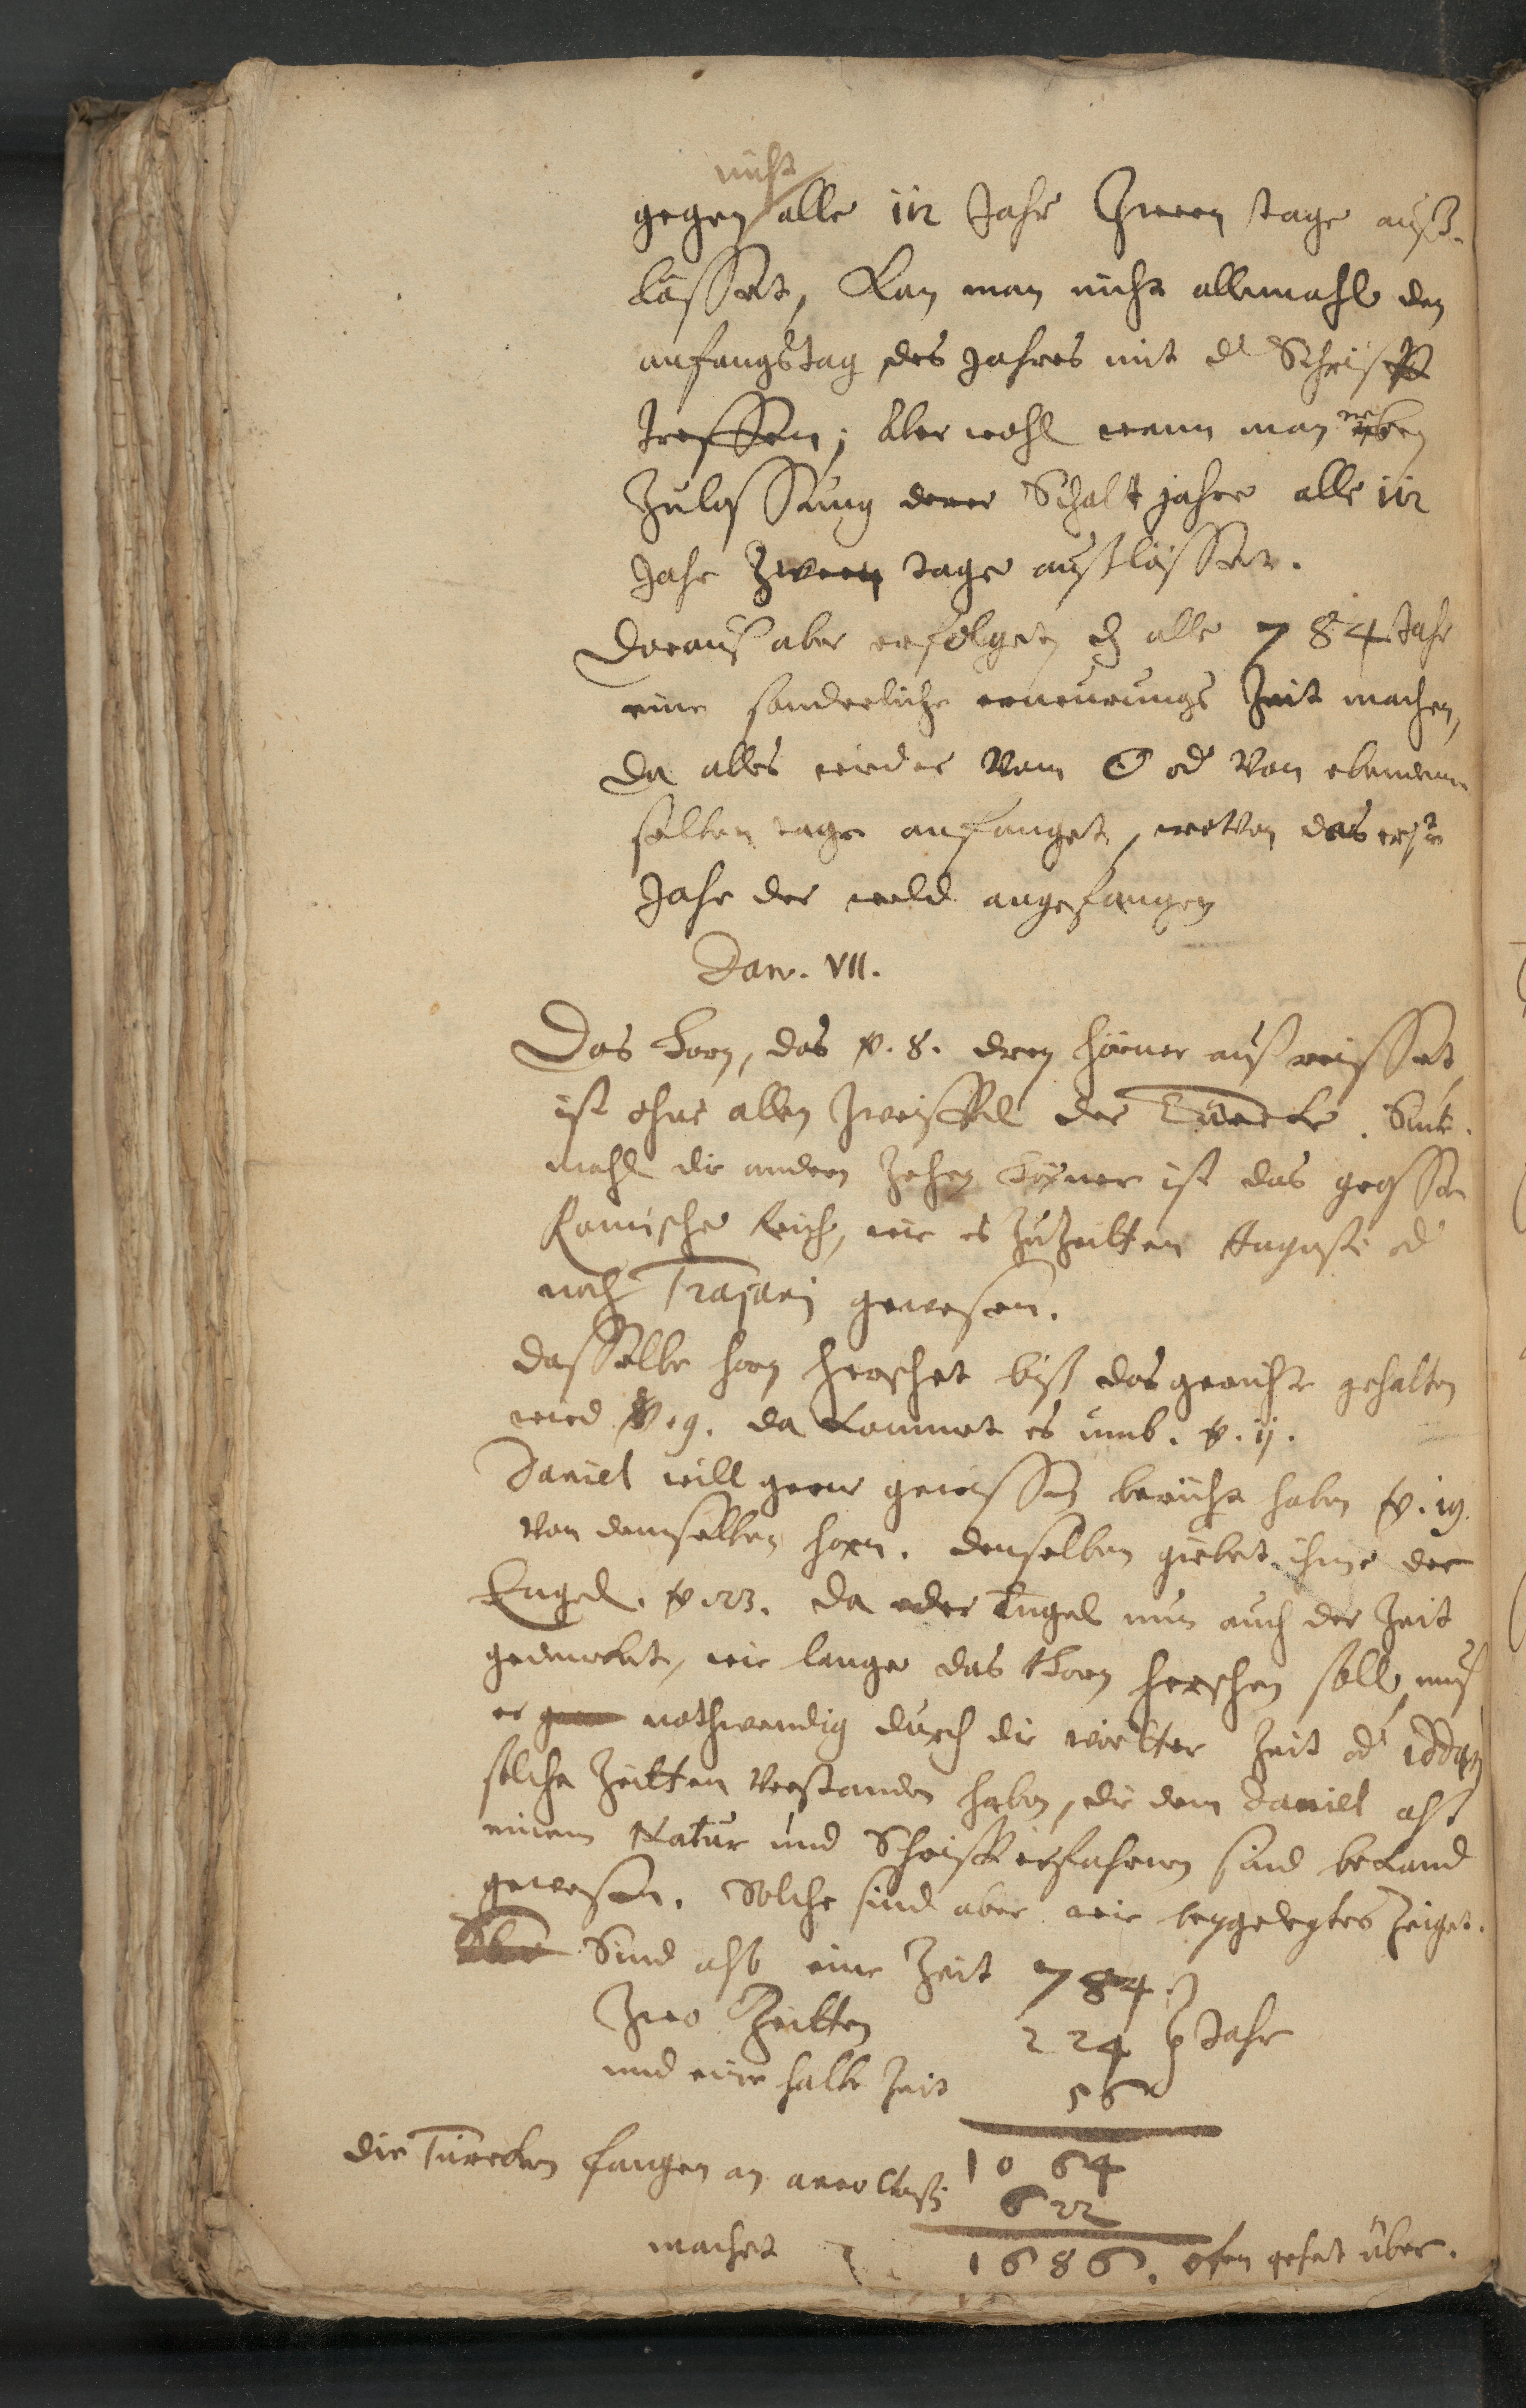 nicht
gegen alle 112 Jahr Zween tage auß-
lässet, Kan man nicht allemahl den
anfangstag des Jahres mit d Schrifft
treffen; Aber wohl wenn man neben
Zulassung derer Schaltjahre alle 112
Jahr Zween tage außlässet.
Daraus aber erfolget, dz alle 784 Jahr
eine sonderliche erneurungs Zeit machen,
da alles wieder vom ☉ od von ebendem
selben tage anfanget, wovon das erste
Jahr der weld angefangen
Dan. VII.
Das Horn, das v. 8. drey hörner außreisset
ist ohne allen Zweiffel der Türcke. Sinte-
mahl die andern Zehen Hörner ist das grosse
Romische Reich, wie es zu Zeitten Augusti od
noch Trajani gewesen.
dasselbe horn herschet biß das gerichte gehalten
wird v. 9. da kommet es umb. v. 11.
Daniel will gern gewissen bericht haben v. 19.
von demselben horn. denselben giebet ihme der
Engel. v. 23. da der Engel nun auch der Zeit
gedencket, wie lange das Horn herschen soll, muß
er nothwendig durch die wörtter Zeit od iddan
solche Zeitten verstanden haben, die dem Daniel alß
einem Natur und Schrifft erfahrnen sind bekand
gewesen. Solche sind aber wie beygelegtes Zeiget.
Sind alß eine Zeit 784.
Zwo Zeitten 224 Jahr
und eine halbe Zeit 56
1064
die Türcken fangen an anno Christi 622
machet 1686. ofen gehet über.